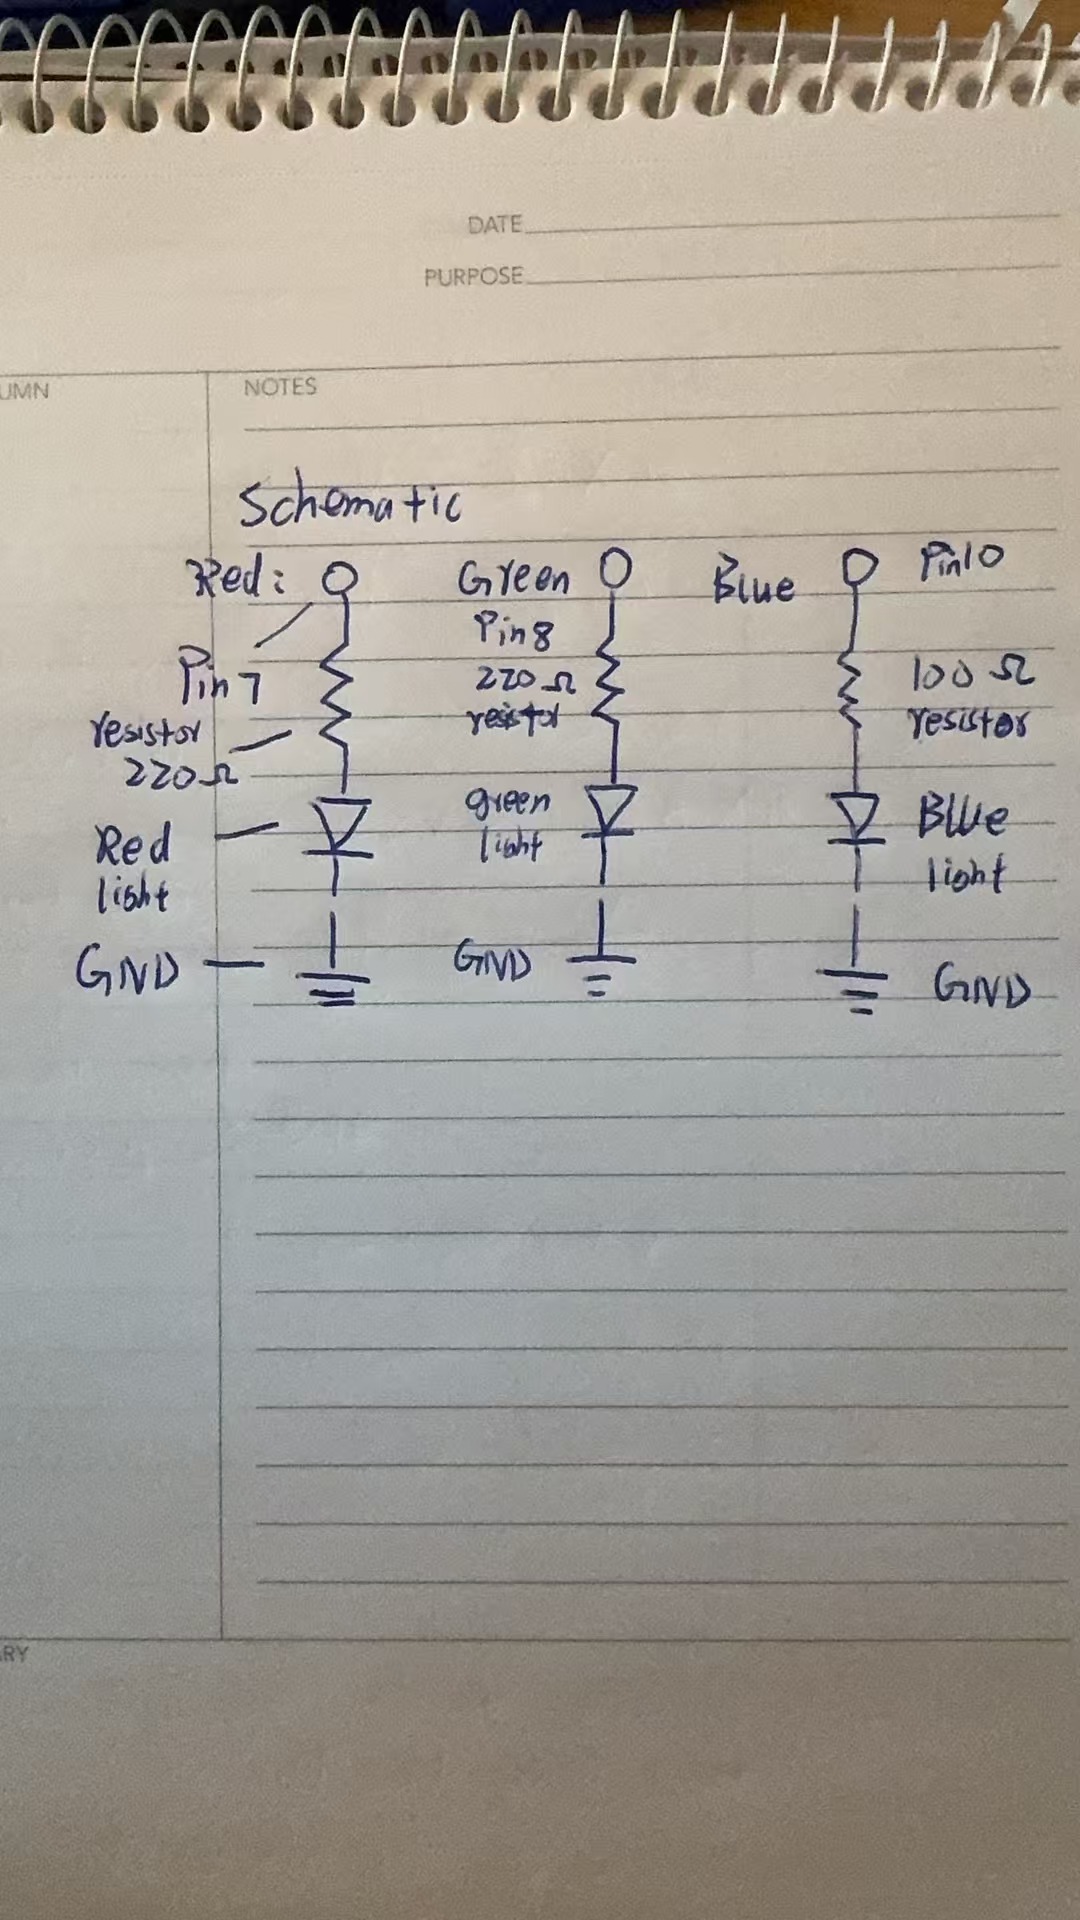 DATE
PURPOSE
UMN
NOTES
Schematic
Red:
Pin 7
resistor
220Ω
Red
light
GND
Green
Pin 8
220Ω
resistor
green
light
GND
Blue
Pin10
100Ω
resistor
Blue
light
GND
ARY